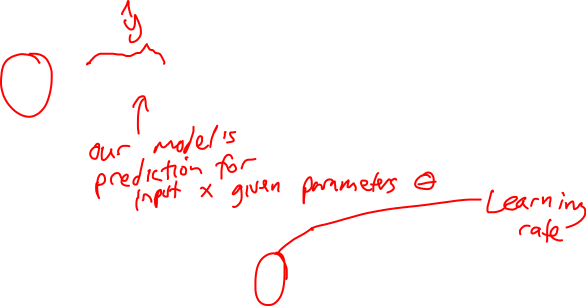 ŷ
our model's
prediction for
input x given parameters θ
Learning
rate